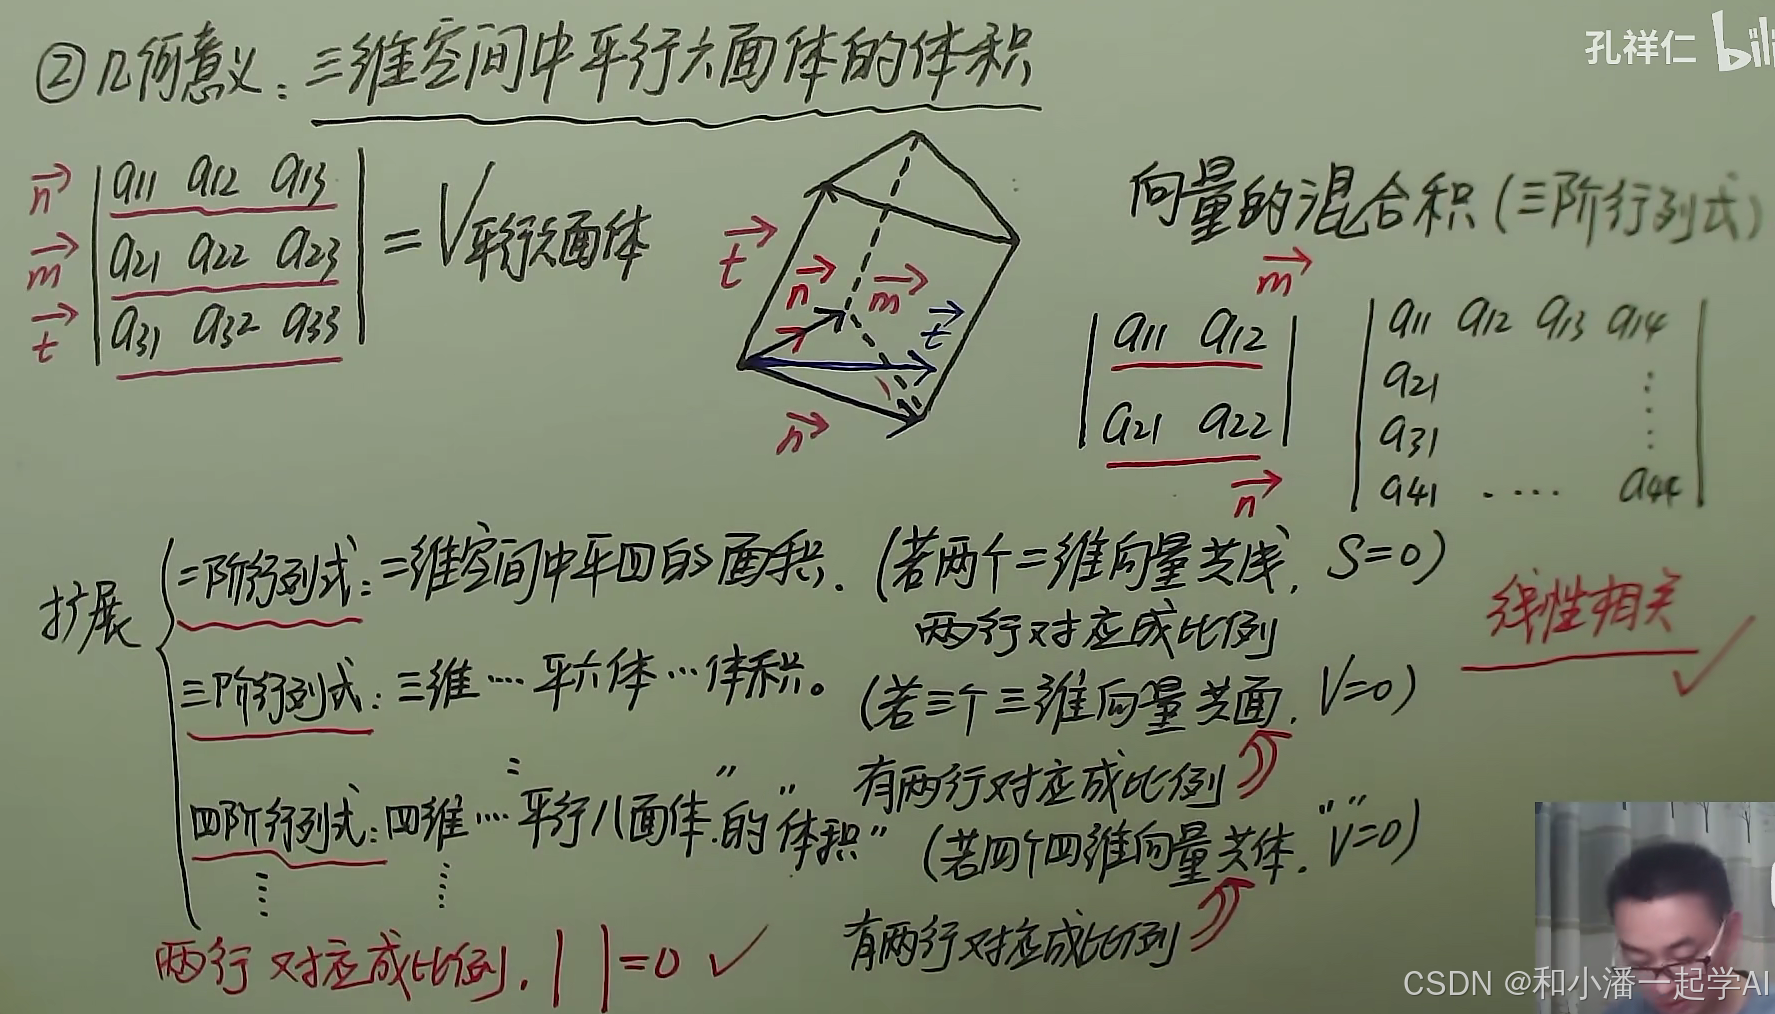 ②几何意义：三维空间中平行六面体的体积
孔祥仁 bili
n a11 a12 a13
m a21 a22 a23 = V平行六面体
t a31 a32 a33
t n m t n
向量的混合积(三阶行列式)
m
a11 a12
a21 a22
n
a11 a12 a13 a14
a21 ⋮
a31 ⋮
a41 ···· a44
扩展
二阶行列式：二维空间中平四的面积. (若两个二维向量共线, S=0)
两行对应成比例
线性相关 ✓
三阶行列式：三维····平六体···体积。 (若三个三维向量共面, V=0)
有两行对应成比例
四阶行列式：四维···"平行八面体"的"体积" (若四个四维向量共体. "V"=0)
有两行对应成比例
两行对应成比例, | |=0 ✓
CSDN @和小潘一起学AI